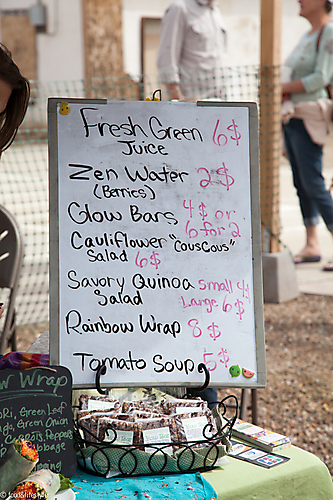 Fresh Green 6$
Juice
Zen Water 2$
(Berries)
Glow Bars 4$ or
6 for 2
Cauliflower "Couscous"
Salad 6$
Savory Quinoa Small 4$
Salad Large 6$
Rainbow Wrap 8$
Tomato Soup 5$
ow Wrap
ori, Green Leaf
Green Onion
Carrots, Peppers
Cabbage